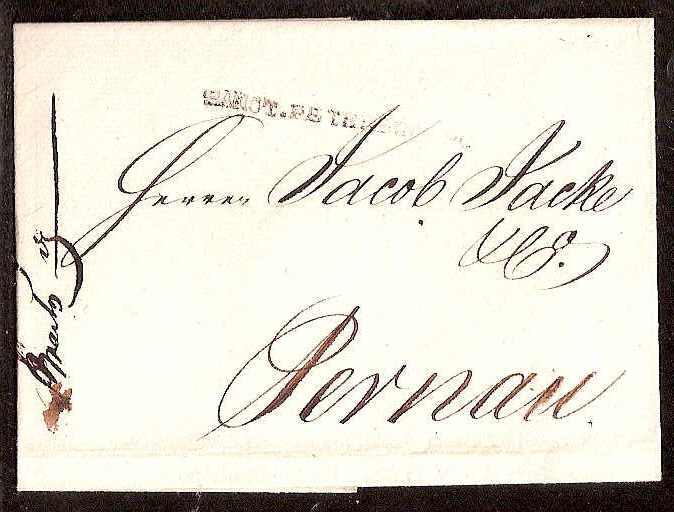 SANCT.PETER
Herren Jacob Jacke
& C.
Pernau.